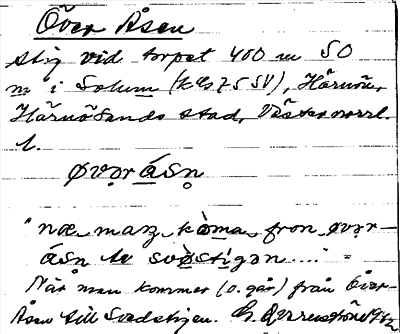 Över Åsen
stig vid torpet 400 m SO
m i Solum (kbl 75 SV), Härnön,
Härnösands stad, Västernorrl.
l.
øvạr á̱sn̥
"næ maṇ kòma fron øvạr-
ásn te svø̀stígan ...." =
När man kommer (o. går) från Över
Åsen till Svedstigen. 1962